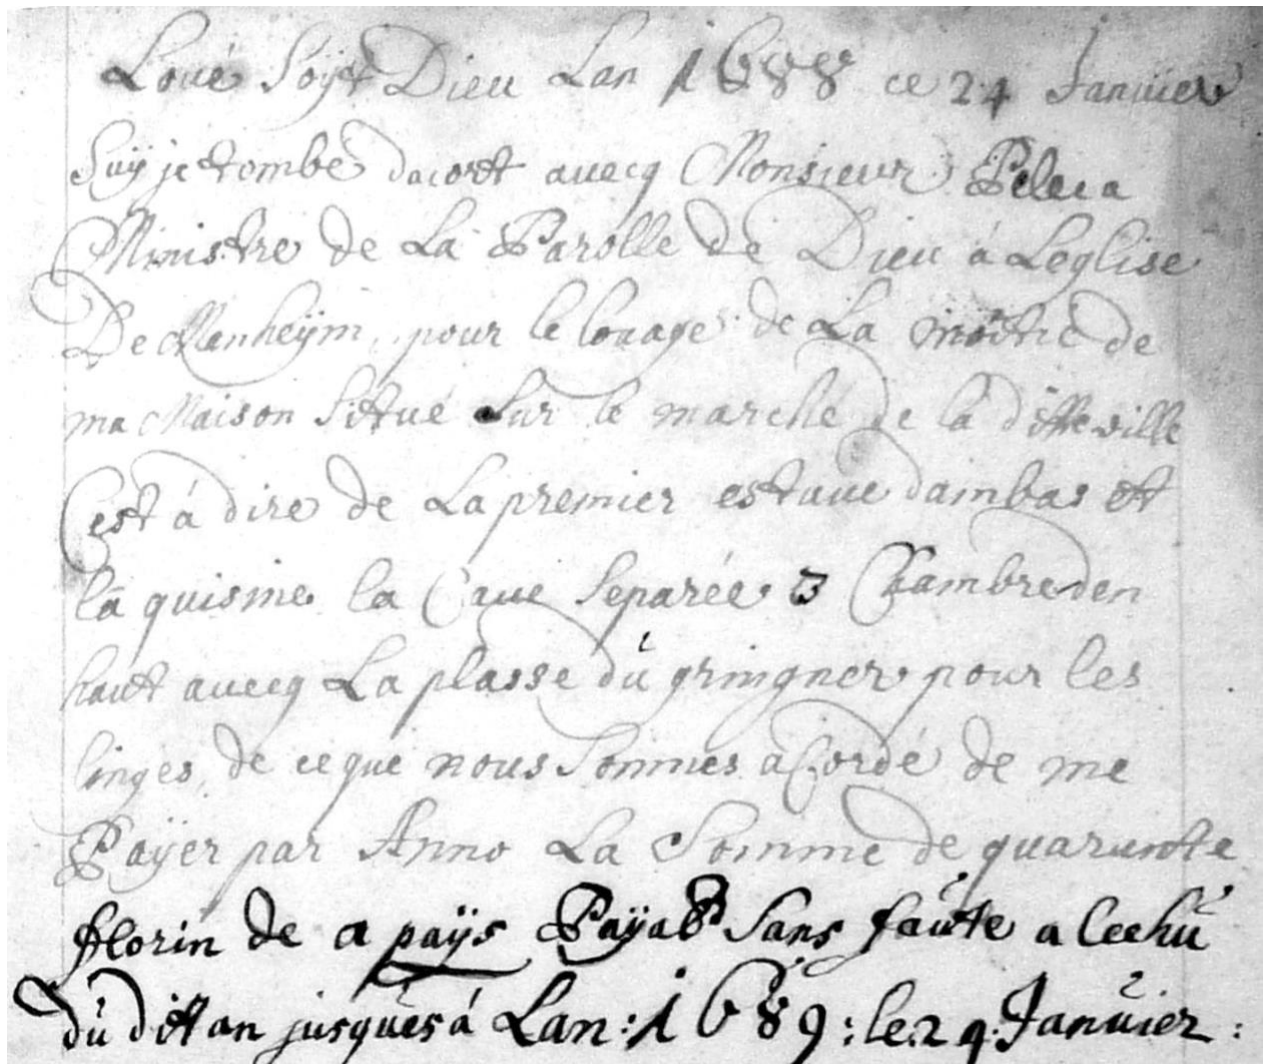 Loué Soÿt Dieu Lan 1688 ce 24 Januier
Suÿ je tombé dacort auecq Monsieur Peleca
Ministre de La Parolle de Dieu á Leglise
De Manheÿm, pour le louage de La moitié de
ma Maison Situé Sur le marché de la ditte ville
Cest á dire de La premier estuue dambas et
la quisine la Caue Separée 3 Chambre den
haut auecq La plasse du gringner pour les
linges, de ce que nous Sommes acordé de me
Paÿer par Anno La Somme de quarante
florin de a païs Païab Sans faute a leehu
du dit an jusques á Lan : 1689 : le 24 Januier :